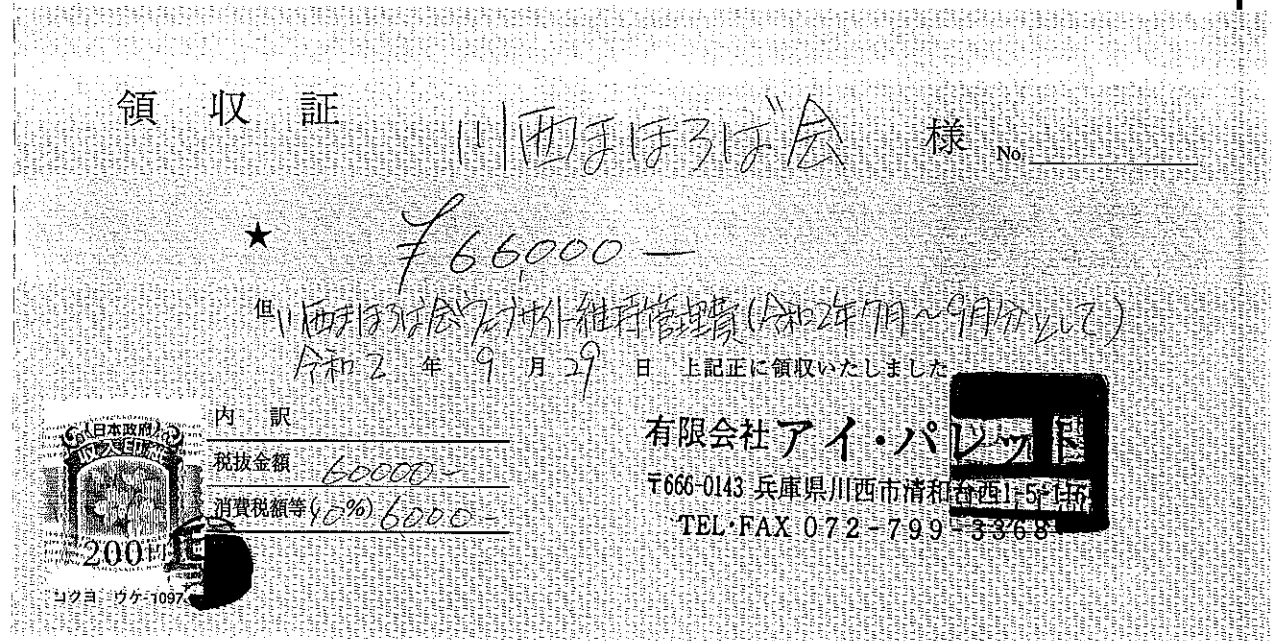 領 収 証
川西まほろば会 様 No.
★ ¥66,000—
但 川西まほろば会ウェブサイト維持管理費(令和2年7月～9月分として)
令和2 年 9 月 29 日 上記正に領収いたしました
内 訳
税抜金額 60000-
消費税額等(10%) 6000-
日本政府
収入印紙
200円
コクヨ ウケ-1097
有限会社アイ・パレット
〒666-0143 兵庫県川西市清和台西1-5-
TEL・FAX 072-799-3368